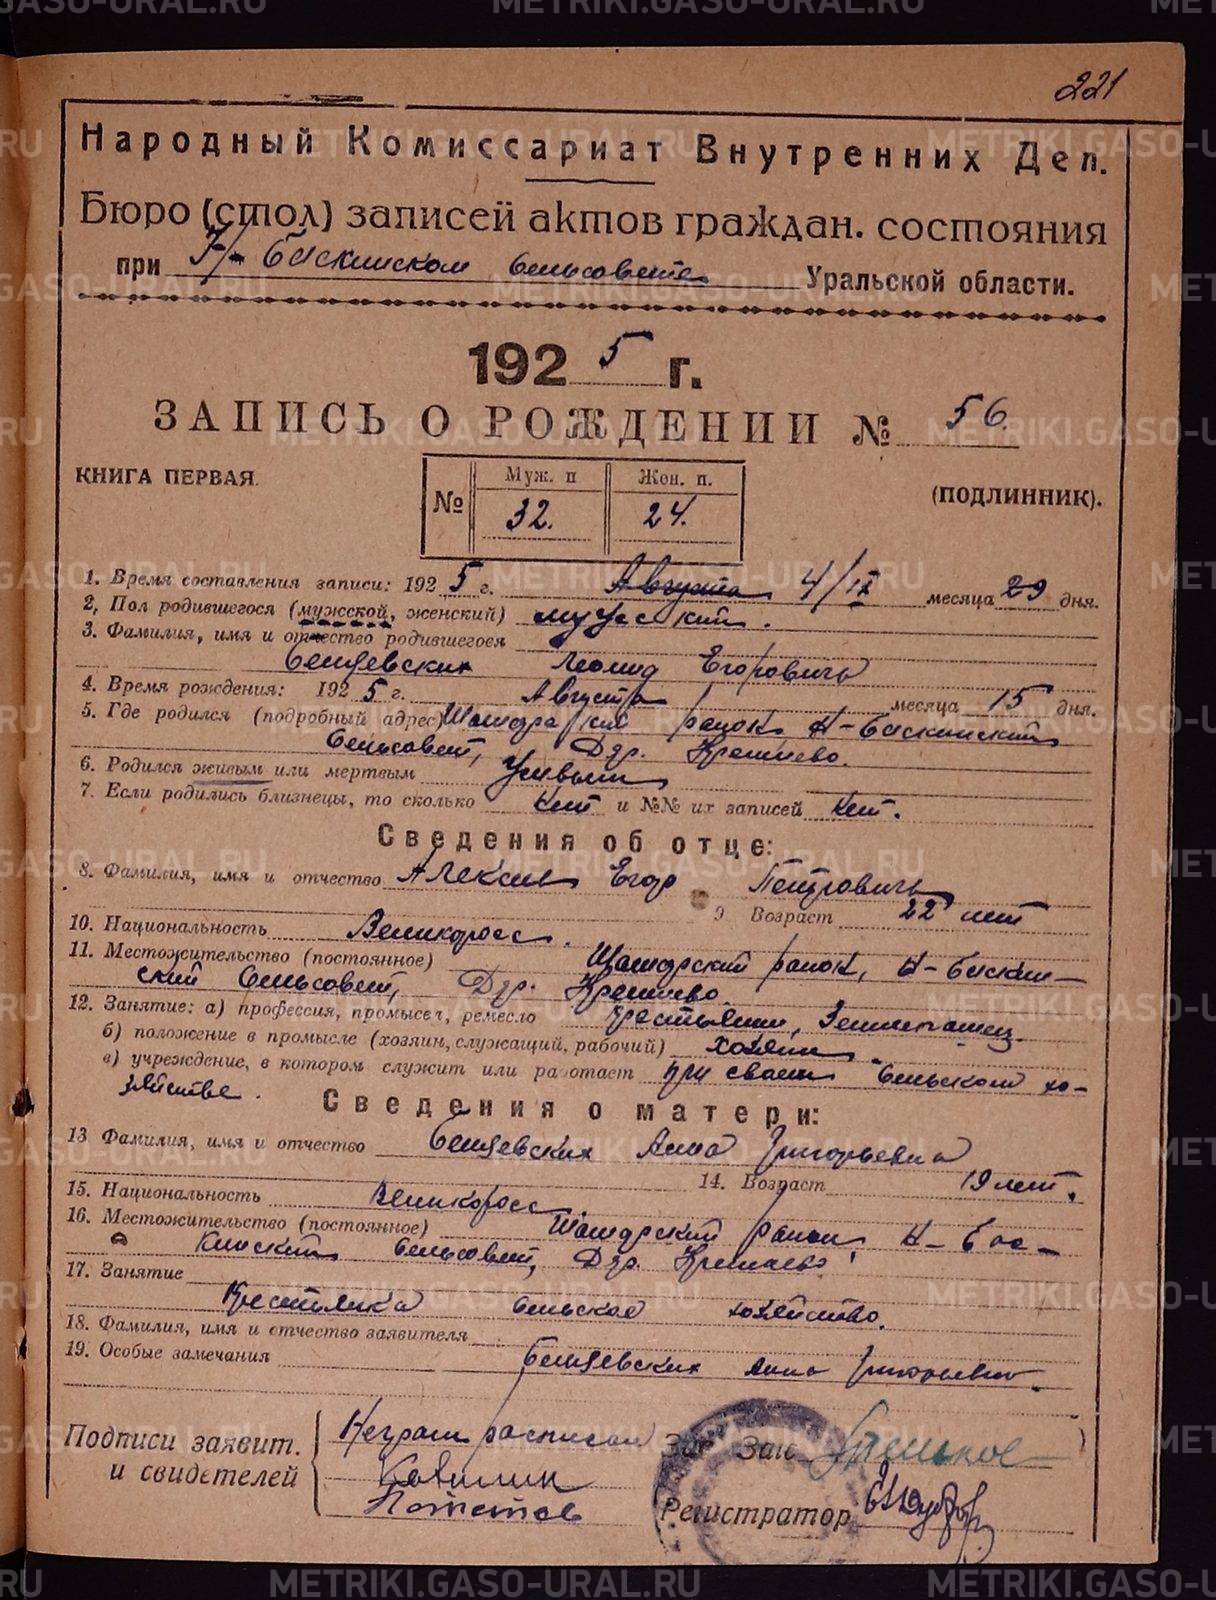 221
Народный Комиссариат Внутренних Дел.
Бюро (стол) записей актов граждан. состояния
при Н-Баскинском сельсовете Уральской области.
1925 г.
ЗАПИСЬ О РОЖДЕНИИ № 56
КНИГА ПЕРВАЯ. (ПОДЛИННИК).
№ Муж. п Жен. п.
32. 24.
1. Время составления записи: 1925 г. Августа 4/IX месяца 29 дня.
2. Пол родившегося (мужской, женский) мужской.
3. Фамилия, имя и отчество родившегося
Леонид Егорович
4. Время рождения: 1925 г. Августа месяца 15 дня.
5. Где родился (подробный адрес) район Н-Баскинский
сельсовет, Дер.
6. Родился живым или мертвым Живым
7. Если родились близнецы, то сколько Нет и №№ их записей Нет.
Сведения об отце:
8. Фамилия, имя и отчество Егор Петрович
9 Возраст 22 лет
10. Национальность Великоросс.
11. Местожительство (постоянное) район, Н-Баскин-
ский сельсовет, Дер.
12. Занятие: а) профессия, промысел, ремесло Крестьянин, Землепашец
б) положение в промысле (хозяин, служащий, рабочий) хозяин.
в) учреждение, в котором служит или работает при своем сельском хо-
зяйстве.
Сведения о матери:
13 Фамилия, имя и отчество Анна Григорьевна
14. Возраст 19 лет.
15. Национальность Великоросс.
16. Местожительство (постоянное) район, Н-Бас-
кинский сельсовет, Дер.
17. Занятие
Крестьянка сельское хозяйство.
18. Фамилия, имя и отчество заявителя
19. Особые замечания Анна Григорьевна.
Подписи заявит.
и свидетелей
Неграм расписал
Зав Загс
Регистратор
METRIKI.GASO-URAL.RU